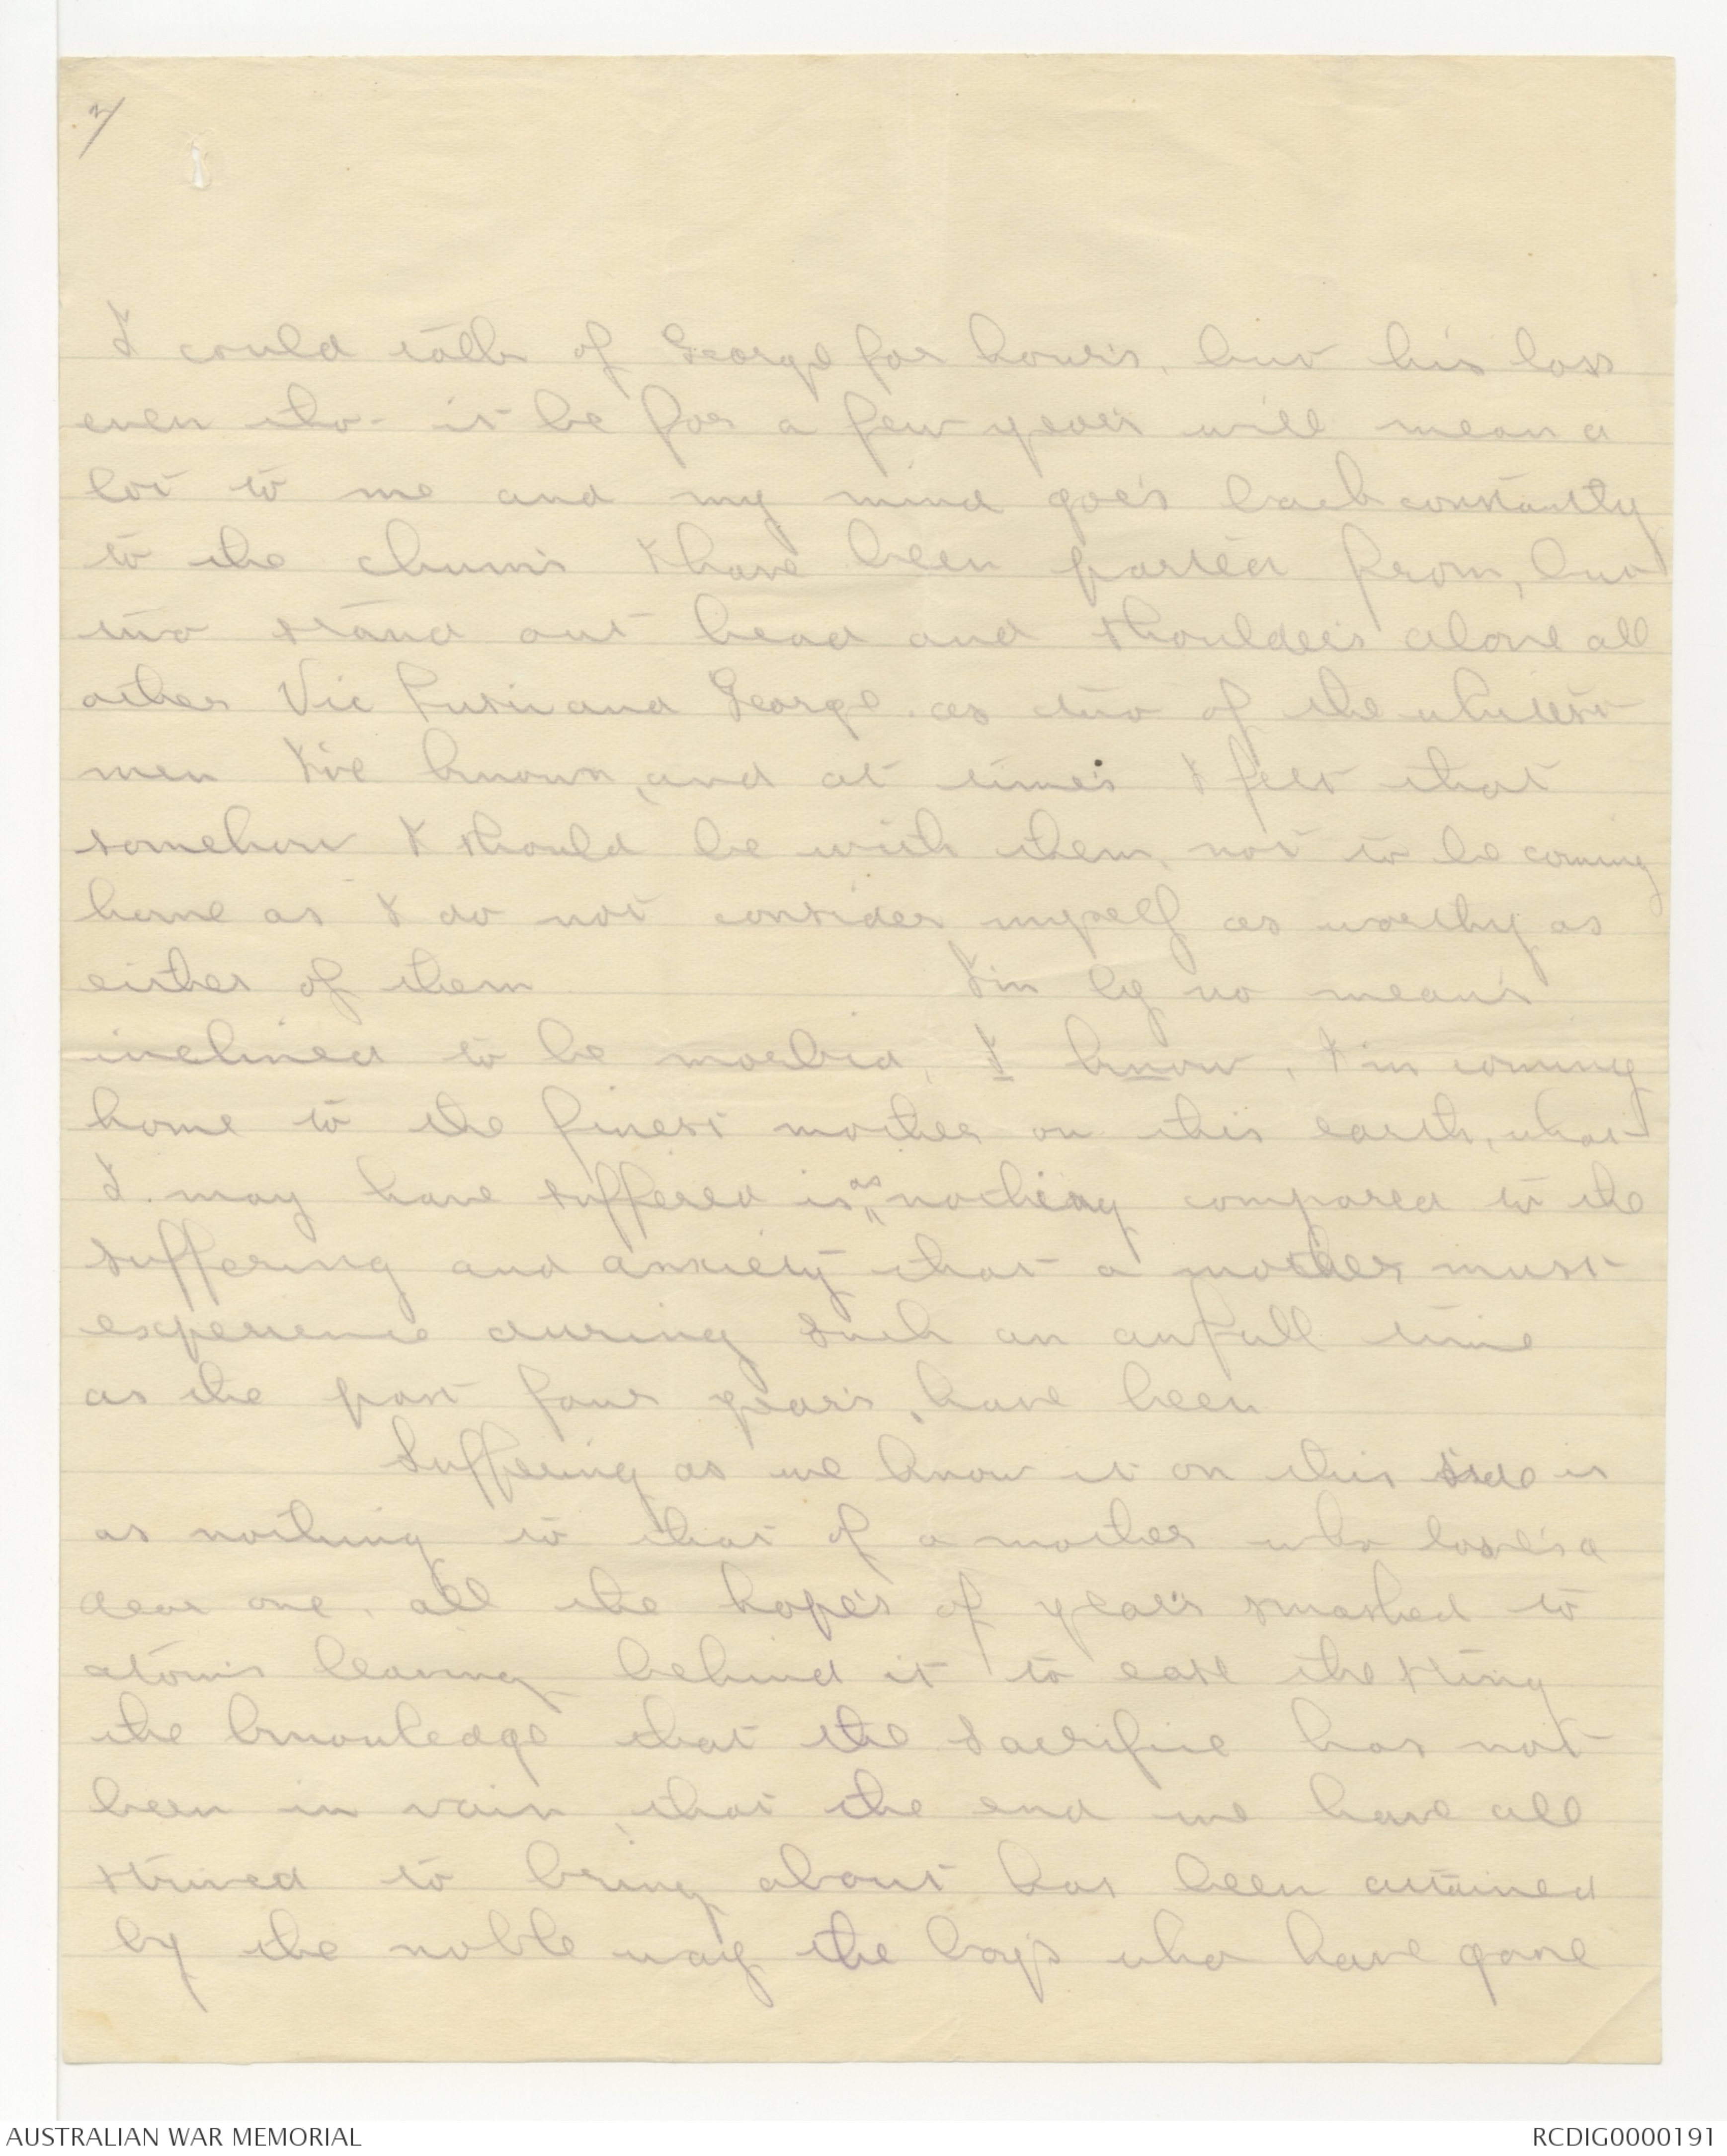 I could talk of George for hours, but his loss
even tho- it be for a few years will mean a
lot to me and my mind goes back constantly
to the chums I have been parted from, but
two stand out head and shoulders alone all
other Vic and George. as two of the whitest
men I've known, and at times I felt that
somehow I should be with them, not to be coming
home as I do not consider myself as worthy as
either of them I'm by no means
inclined to be morbid, I know, I'm coming
home to the finest mother on this earth, what
I. may have suffered is as nothing compared to the
suffering and anxiety that a mother must
experience during such an awfull time
as the past four years, have been
Suffering as we know it on this side is
as nothing to that of a mother who loses a
dear one, all the hopes of years smashed to
atoms leaving behind it to ease the sting
the knowledge that the sacrifice has not
been in vain, that the end we have all
strived to bring about has been attained
by the noble way the boys who have gone
AUSTRALIAN WAR MEMORIAL
RCDIG0000191